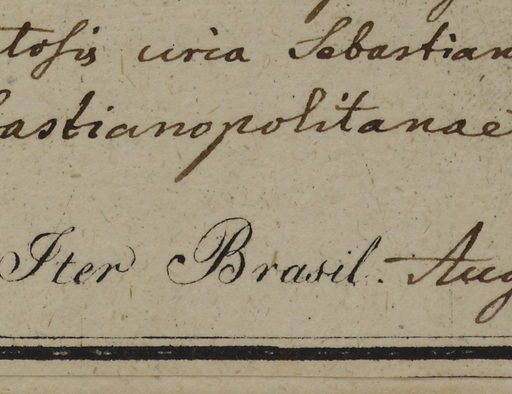 tosis circa Sebastian
bastianopolitanae
Iter Brasil. Aug